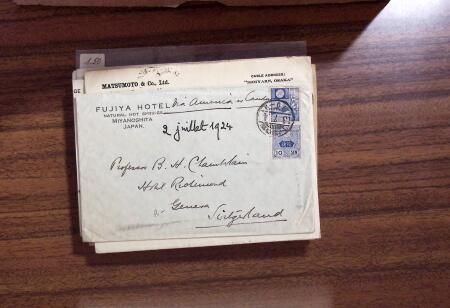 1.50
MATSUMOTO & Co., Ltd.
CABLE ADDRESS:
"MOIYARN, OSAKA"
FUJIYA HOTEL
Via America or Canada
NATURAL HOT SPRINGS
MIYANOSHITA
JAPAN.
2 juillet 1924
Professor B. H. Chamberlain
Hotel Richemond
Geneva
Switzerland